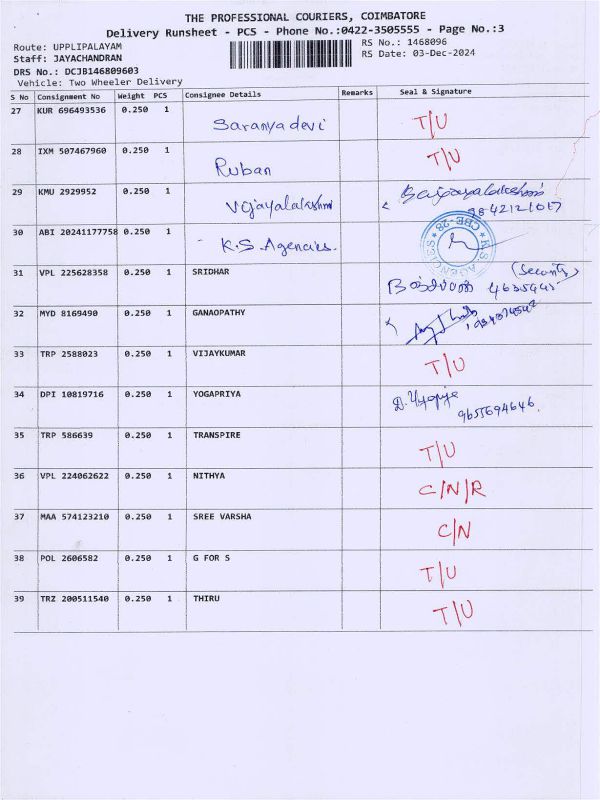 THE PROFESSIONAL COURIERS, COIMBATORE
Delivery Runsheet - PCS - Phone No.:0422-3505555 - Page No.:3
Route: UPPLIPALAYAM
Staff: JAYACHANDRAN
DRS No.: DCJB146809603
Vehicle: Two Wheeler Delivery
RS No.: 1468096
RS Date: 03-Dec-2024
S No Consignment No Weight PCS Consignee Details Remarks Seal & Signature
27 KUR 696493536 0.250 1 Saranyadevi T/U
28 IXM 507467960 0.250 1 Ruban T/U
29 KMU 2929952 0.250 1 Vijayalakshmi
9842121017
30 ABI 20241177758 0.250 1 K.S. Agencies.
K.S. AGENCIES CBE-28
31 VPL 225628358 0.250 1 SRIDHAR (Security)
32 MYD 8169490 0.250 1 GANAOPATHY
33 TRP 2588023 0.250 1 VIJAYKUMAR T/U
34 DPI 10819716 0.250 1 YOGAPRIYA
9655694646.
35 TRP 586639 0.250 1 TRANSPIRE T/U
36 VPL 224062622 0.250 1 NITHYA C/N/R
37 MAA 574123210 0.250 1 SREE VARSHA C/N
38 POL 2606582 0.250 1 G FOR S T/U
39 TRZ 200511540 0.250 1 THIRU T/U